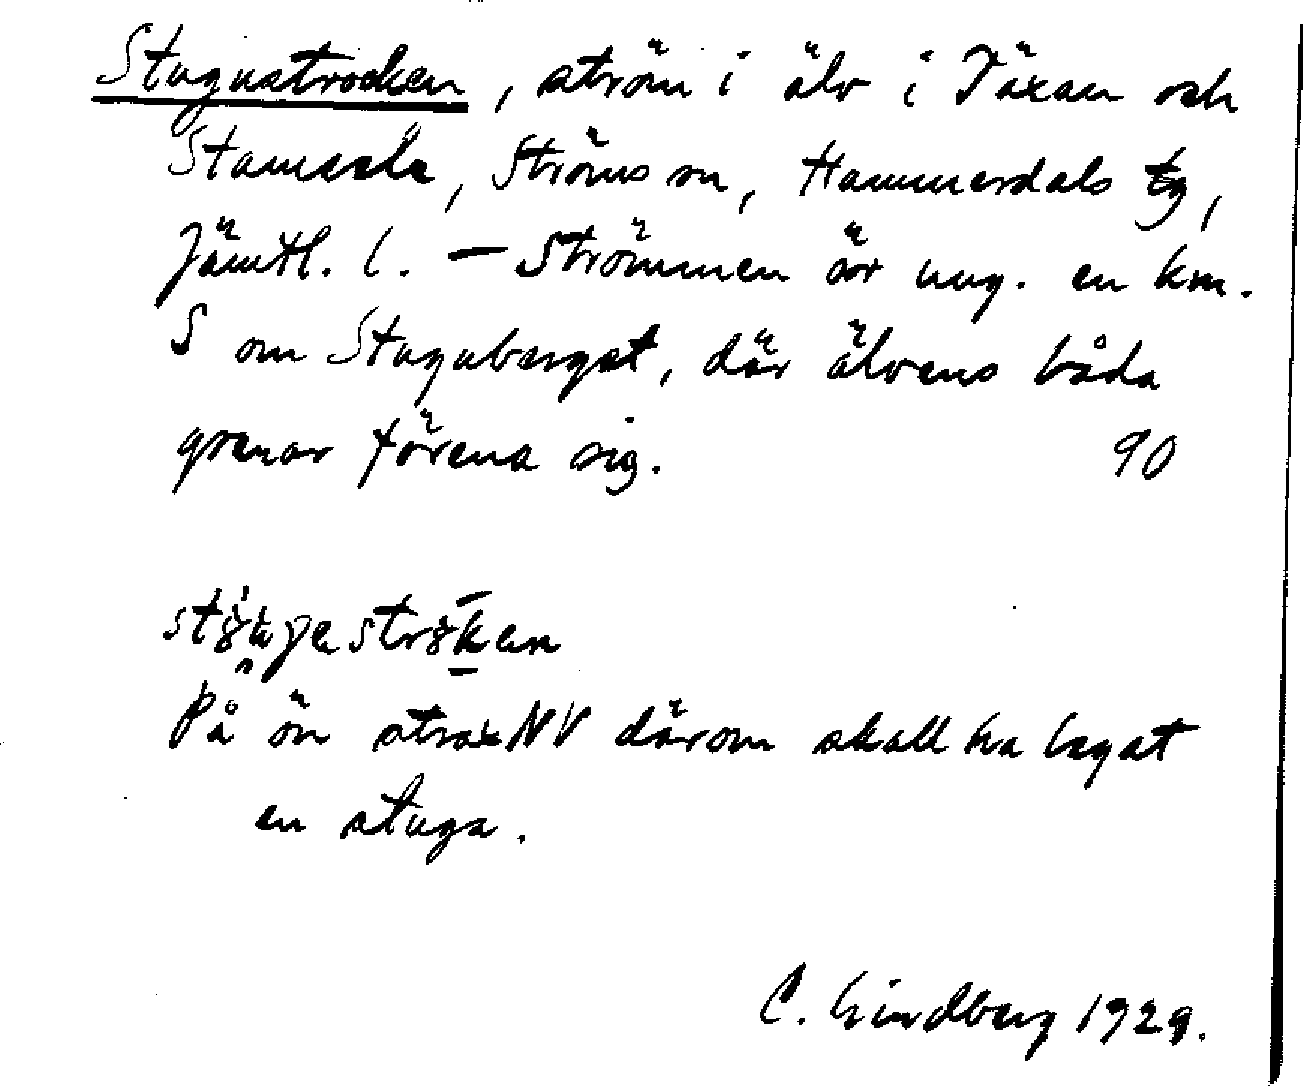 Stugustrocken, ström i älv i Täxan och
Stamsele, Ströms sn, Hammerdals tg,
Jämtl. l. — Strömmen är ung. en km.
S om Stuguberget, där älvens båda
grenar förena sig. 90
På ön strax NV därom skall ha legat
en stuga.
C. Lindberg 1929.